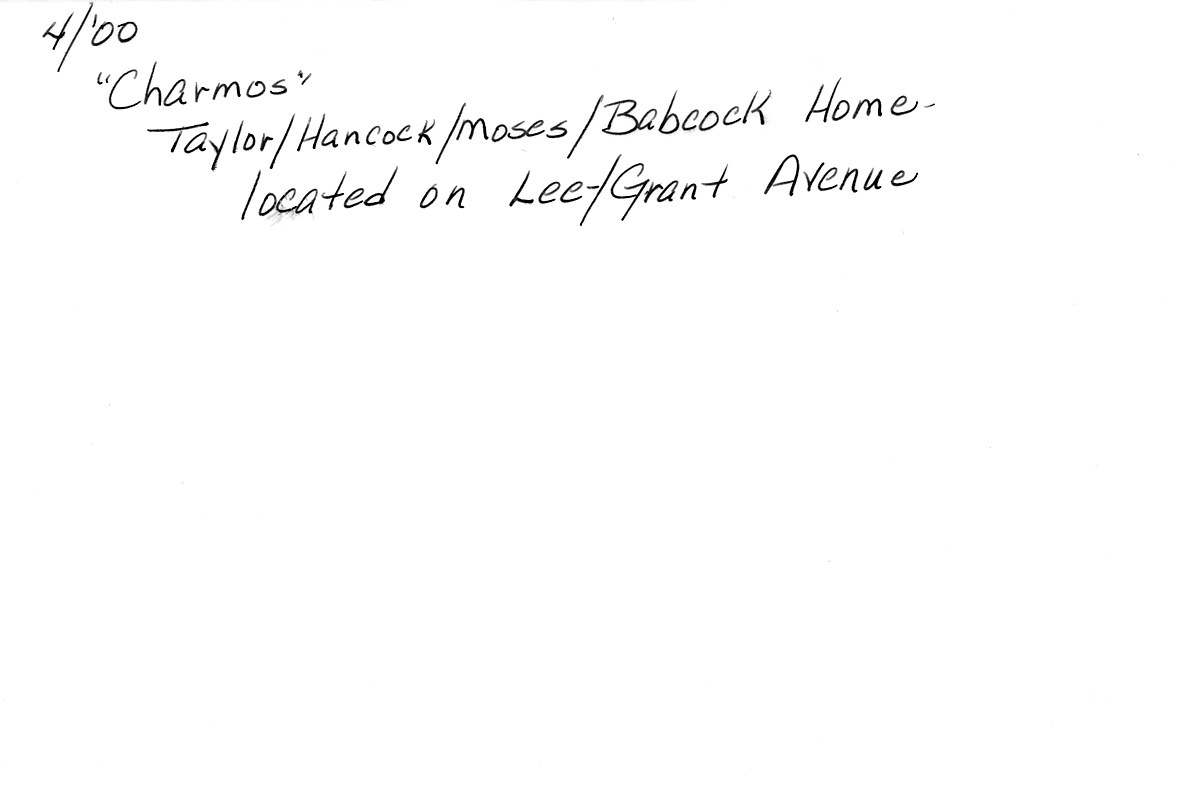 4/'00
"Charmos"
Taylor/Hancock/Moses/Babcock Home-
located on Lee-/Grant Avenue